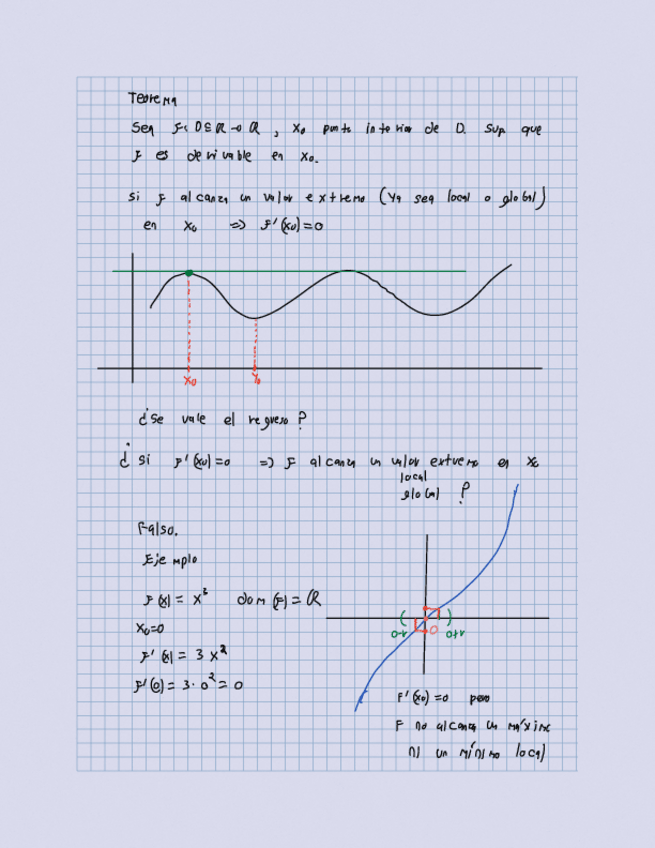 Teorema
Sea F: D ⊆ ℝ → ℝ , x₀ punto interior de D. Sup que
F es derivable en x₀.
Si F alcanza un valor extremo (ya sea local o global)
en x₀ => F'(x₀)=0
x₀ y₀
¿Se vale el regreso?
¿ Si F'(x₀)=0 => F alcanza un valor extremo en x₀
local
global ?
Falso.
Ejemplo
F(x) = x³ dom(F) = ℝ
x₀=0
F'(x) = 3x²
F'(0) = 3·0² = 0
( )
0-r 0 0+r
F'(x₀)=0 pero
F no alcanza un máximo
ni un mínimo local